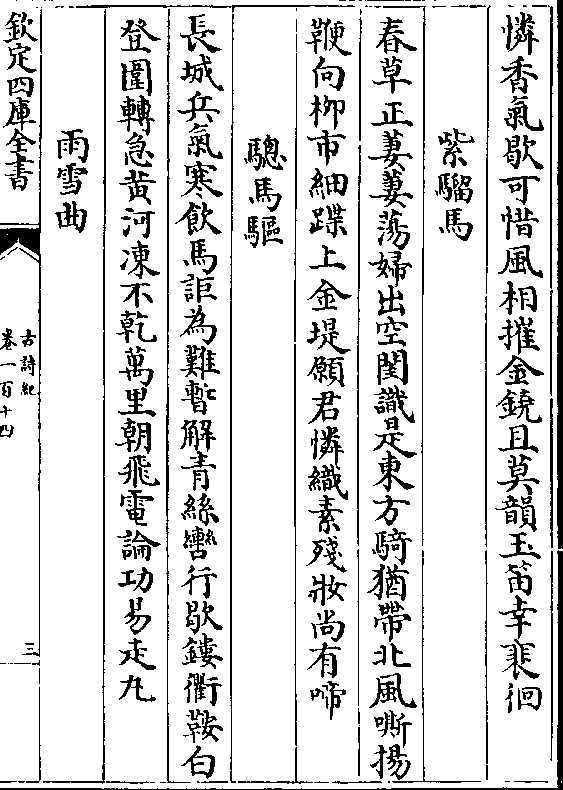 憐香氣歇可惜風相摧金鐃且莫韻玉笛幸裴徊
紫騮馬
春草正萋萋蕩婦出空閨識是東方騎猶帶北風嘶揚
鞭向柳市細蹀上金堤願君憐織素殘妝尚有啼
驄馬驅
長城兵氣寒飲馬詎為難暫解青絲轡行歇鏤衢鞍白
登圍轉急黃河凍不乾萬里朝飛電論功易走丸
雨雪曲
欽定四庫全書
古詩紀
卷一百十四
三